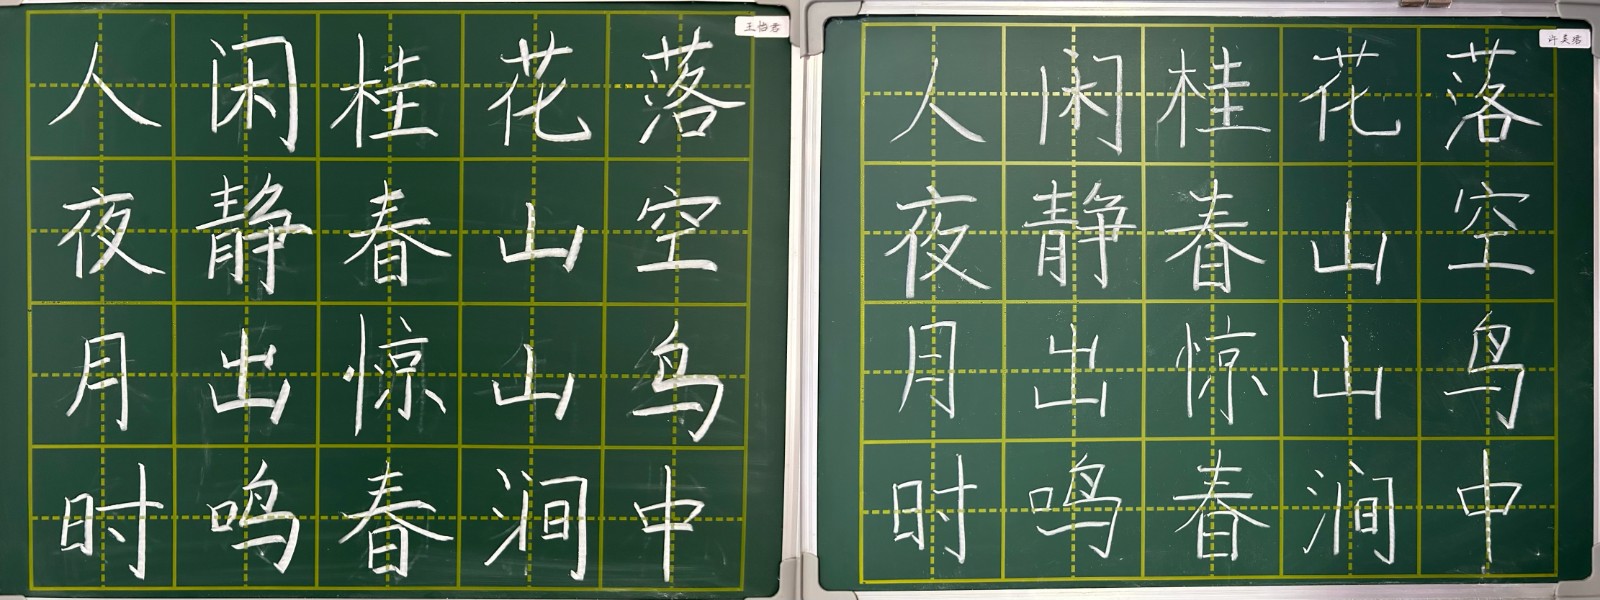 王怡君
人闲桂花落
夜静春山空
月出惊山鸟
时鸣春涧中
人闲桂花落
夜静春山空
月出惊山鸟
时鸣春涧中